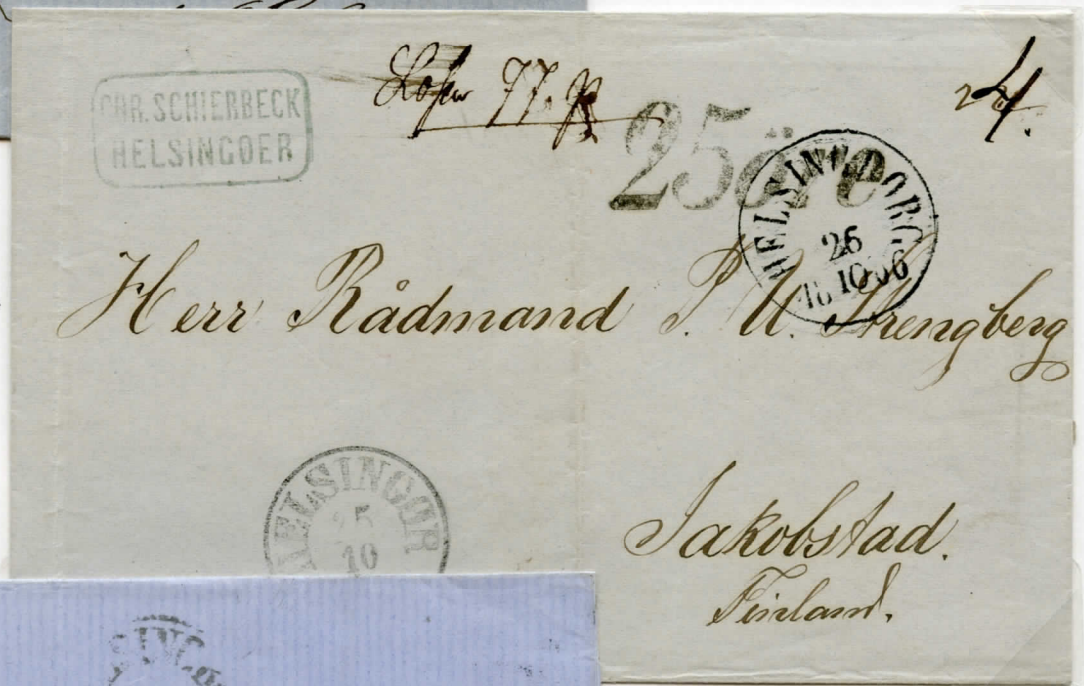 CHR. SCHIERBECK
HELSINGOER
77.
24.
25 öre
HELSINGBORG
26
10
Herr Rådmand P. U. Strengberg
HELSINGÖR
25
10
Jakobstad.
Finland.